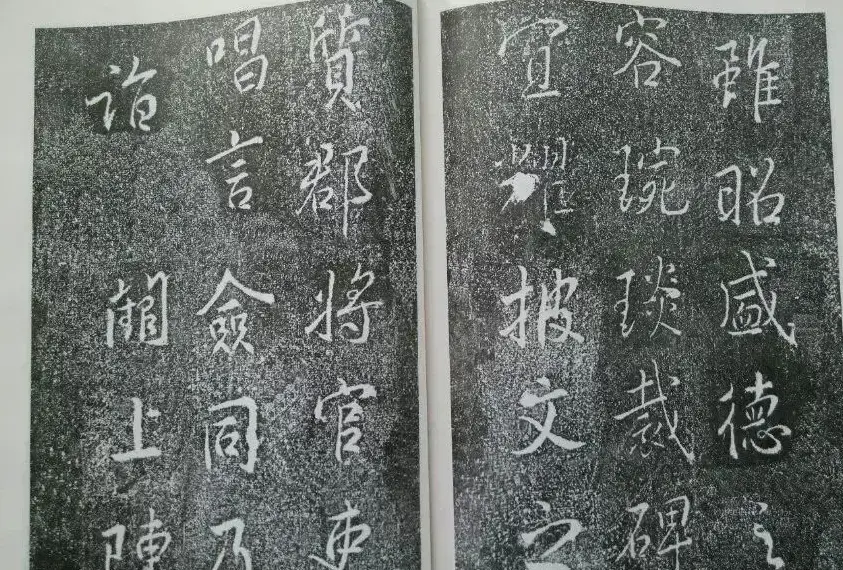 雖昭盛德之
容琬琰裁碑
宜耀披文之
質郡將官吏
唱言僉同乃
詣 闕上陳